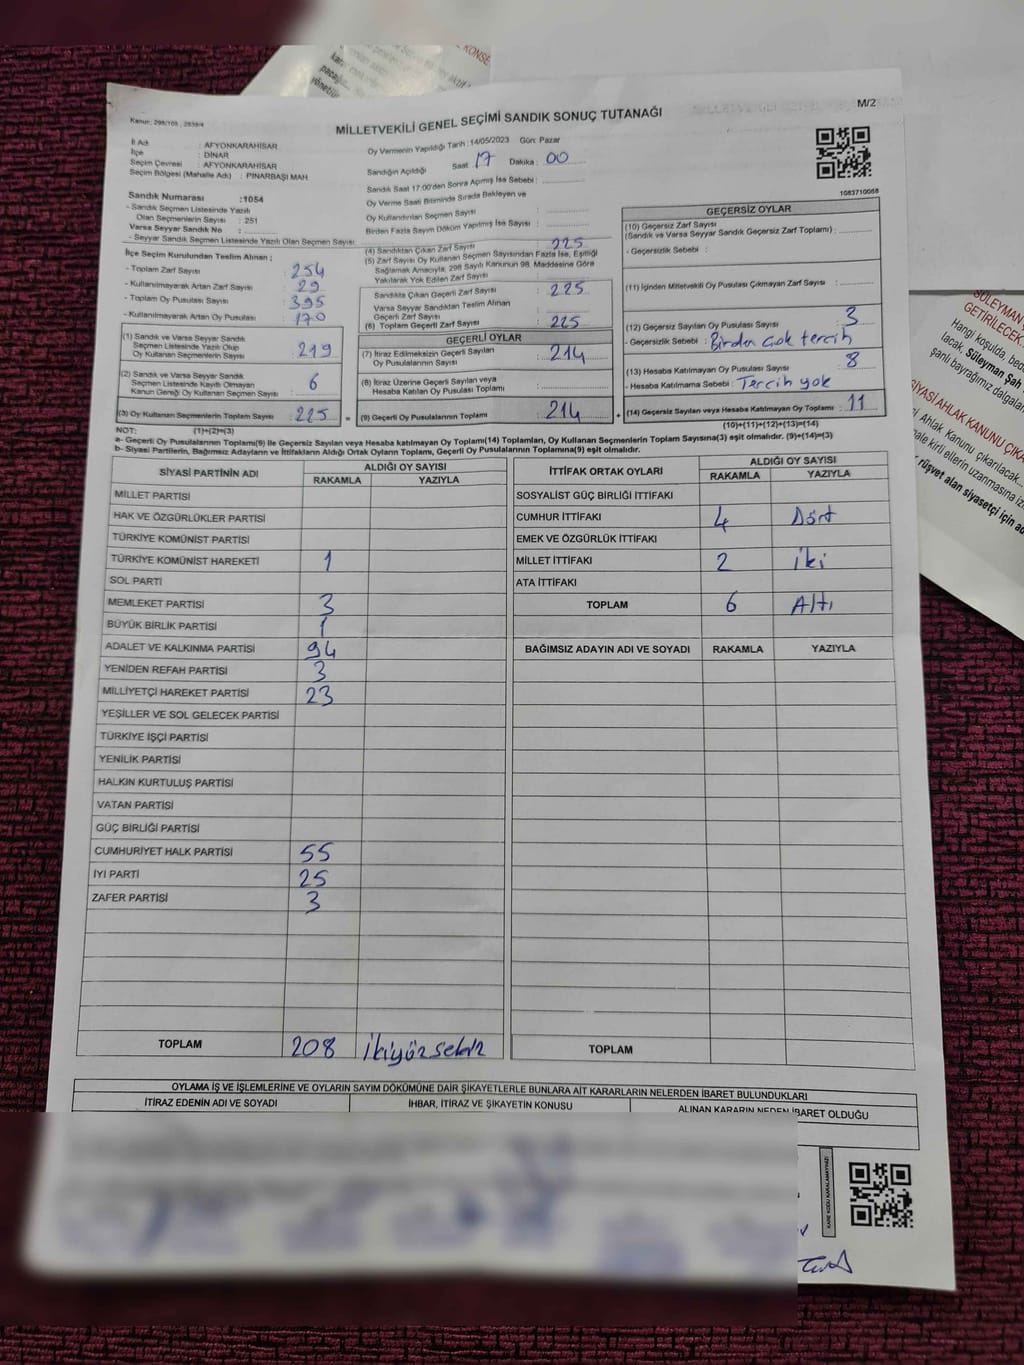 KONSE
M/2
Kanun: 298/105 , 2839/4
MİLLETVEKİLİ GENEL SEÇİMİ SANDIK SONUÇ TUTANAĞI
İl Adı : AFYONKARAHİSAR
İlçe : DİNAR
Seçim Çevresi : AFYONKARAHİSAR
Seçim Bölgesi (Mahalle Adı) : PINARBAŞI MAH
Sandık Numarası :1054
- Sandık Seçmen Listesinde Yazılı
Olan Seçmenlerin Sayısı : 251
Varsa Seyyar Sandık No :
- Seyyar Sandık Seçmen Listesinde Yazılı Olan Seçmen Sayısı
İlçe Seçim Kurulundan Teslim Alınan ;
- Toplam Zarf Sayısı : 254
- Kullanılmayarak Artan Zarf Sayısı : 29
- Toplam Oy Pusulası Sayısı : 395
- Kullanılmayarak Artan Oy Pusulası : 170
(1) Sandık ve Varsa Seyyar Sandık
Seçmen Listesinde Yazılı Olup
Oy Kullanan Seçmenlerin Sayısı : 219
(2) Sandık ve Varsa Seyyar Sandık
Seçmen Listesinde Kayıtlı Olmayan
Kanun Gereği Oy Kullanan Seçmen Sayısı : 6
(3) Oy Kullanan Seçmenlerin Toplam Sayısı : 225
(1)+(2)=(3)
Oy Vermenin Yapıldığı Tarih : 14/05/2023 Gün: Pazar
Sandığın Açıldığı Saat : 17 Dakika : 00
Sandık Saat 17:00'den Sonra Açılmış İse Sebebi :
Oy Verme Saati Bitiminde Sırada Bekleyen ve
Oy Kullandırılan Seçmen Sayısı :
Birden Fazla Sayım Döküm Yapılmış İse Sayısı :
(4) Sandıktan Çıkan Zarf Sayısı : 225
(5) Zarf Sayısı Oy Kullanan Seçmen Sayısından Fazla İse, Eşitliği
Sağlamak Amacıyla, 298 Sayılı Kanunun 98. Maddesine Göre
Yakılarak Yok Edilen Zarf Sayısı :
Sandıkta Çıkan Geçerli Zarf Sayısı : 225
Varsa Seyyar Sandıktan Teslim Alınan
Geçerli Zarf Sayısı :
(6) Toplam Geçerli Zarf Sayısı : 225
GEÇERLİ OYLAR
(7) İtiraz Edilmeksizin Geçerli Sayılan
Oy Pusulalarının Sayısı : 214
(8) İtiraz Üzerine Geçerli Sayılan veya
Hesaba Katılan Oy Pusulası Toplamı :
= (9) Geçerli Oy Pusulalarının Toplamı : 214
1083710088
GEÇERSİZ OYLAR
(10) Geçersiz Zarf Sayısı
(Sandık ve Varsa Seyyar Sandık Geçersiz Zarf Toplamı) :
- Geçersizlik Sebebi :
(11) İçinden Milletvekili Oy Pusulası Çıkmayan Zarf Sayısı :
(12) Geçersiz Sayılan Oy Pusulası Sayısı : 3
- Geçersizlik Sebebi : Birden çok tercih
(13) Hesaba Katılmayan Oy Pusulası Sayısı : 8
- Hesaba Katılmama Sebebi : Tercih yok
+ (14) Geçersiz Sayılan veya Hesaba Katılmayan Oy Toplamı : 11
(10)+(11)+(12)+(13)=(14)
NOT:
a- Geçerli Oy Pusulalarının Toplamı(9) ile Geçersiz Sayılan veya Hesaba katılmayan Oy Toplamı(14) Toplamları, Oy Kullanan Seçmenlerin Toplam Sayısına(3) eşit olmalıdır. (9)+(14)=(3)
b- Siyasi Partilerin, Bağımsız Adayların ve İttifakların Aldığı Ortak Oyların Toplamı, Geçerli Oy Pusulalarının Toplamına(9) eşit olmalıdır.
SİYASİ PARTİNİN ADI ALDIĞI OY SAYISI
RAKAMLA YAZIYLA
MİLLET PARTİSİ
HAK VE ÖZGÜRLÜKLER PARTİSİ
TÜRKİYE KOMÜNİST PARTİSİ
TÜRKİYE KOMÜNİST HAREKETİ 1
SOL PARTİ
MEMLEKET PARTİSİ 3
BÜYÜK BİRLİK PARTİSİ 1
ADALET VE KALKINMA PARTİSİ 94
YENİDEN REFAH PARTİSİ 3
MİLLİYETÇİ HAREKET PARTİSİ 23
YEŞİLLER VE SOL GELECEK PARTİSİ
TÜRKİYE İŞÇİ PARTİSİ
YENİLİK PARTİSİ
HALKIN KURTULUŞ PARTİSİ
VATAN PARTİSİ
GÜÇ BİRLİĞİ PARTİSİ
CUMHURİYET HALK PARTİSİ 55
İYİ PARTİ 25
ZAFER PARTİSİ 3
TOPLAM 208 İkiyüz sekiz
İTTİFAK ORTAK OYLARI ALDIĞI OY SAYISI
RAKAMLA YAZIYLA
SOSYALİST GÜÇ BİRLİĞİ İTTİFAKI
CUMHUR İTTİFAKI 4 Dört
EMEK VE ÖZGÜRLÜK İTTİFAKI
MİLLET İTTİFAKI 2 iki
ATA İTTİFAKI
TOPLAM 6 Altı
BAĞIMSIZ ADAYIN ADI VE SOYADI RAKAMLA YAZIYLA
TOPLAM
OYLAMA İŞ VE İŞLEMLERİNE VE OYLARIN SAYIM DÖKÜMÜNE DAİR ŞİKAYETLERLE BUNLARA AİT KARARLARIN NELERDEN İBARET BULUNDUKLARI
İTİRAZ EDENİN ADI VE SOYADI İHBAR, İTİRAZ VE ŞİKAYETİN KONUSU ALINAN KARARIN NEDEN İBARET OLDUĞU
KARE KODU KARALAMAYINIZ!
SÜLEYMAN
GETİRİLECEK
Hangi koşulda, bed
lacak, Süleyman Şah
şanlı bayrağımız dalgalan
SİYASİ AHLAK KANUNU ÇIKA
Ahlak Kanunu çıkarılacak..
kirli ellerin uzanmasına iz
rüşvet alan siyasetçi için